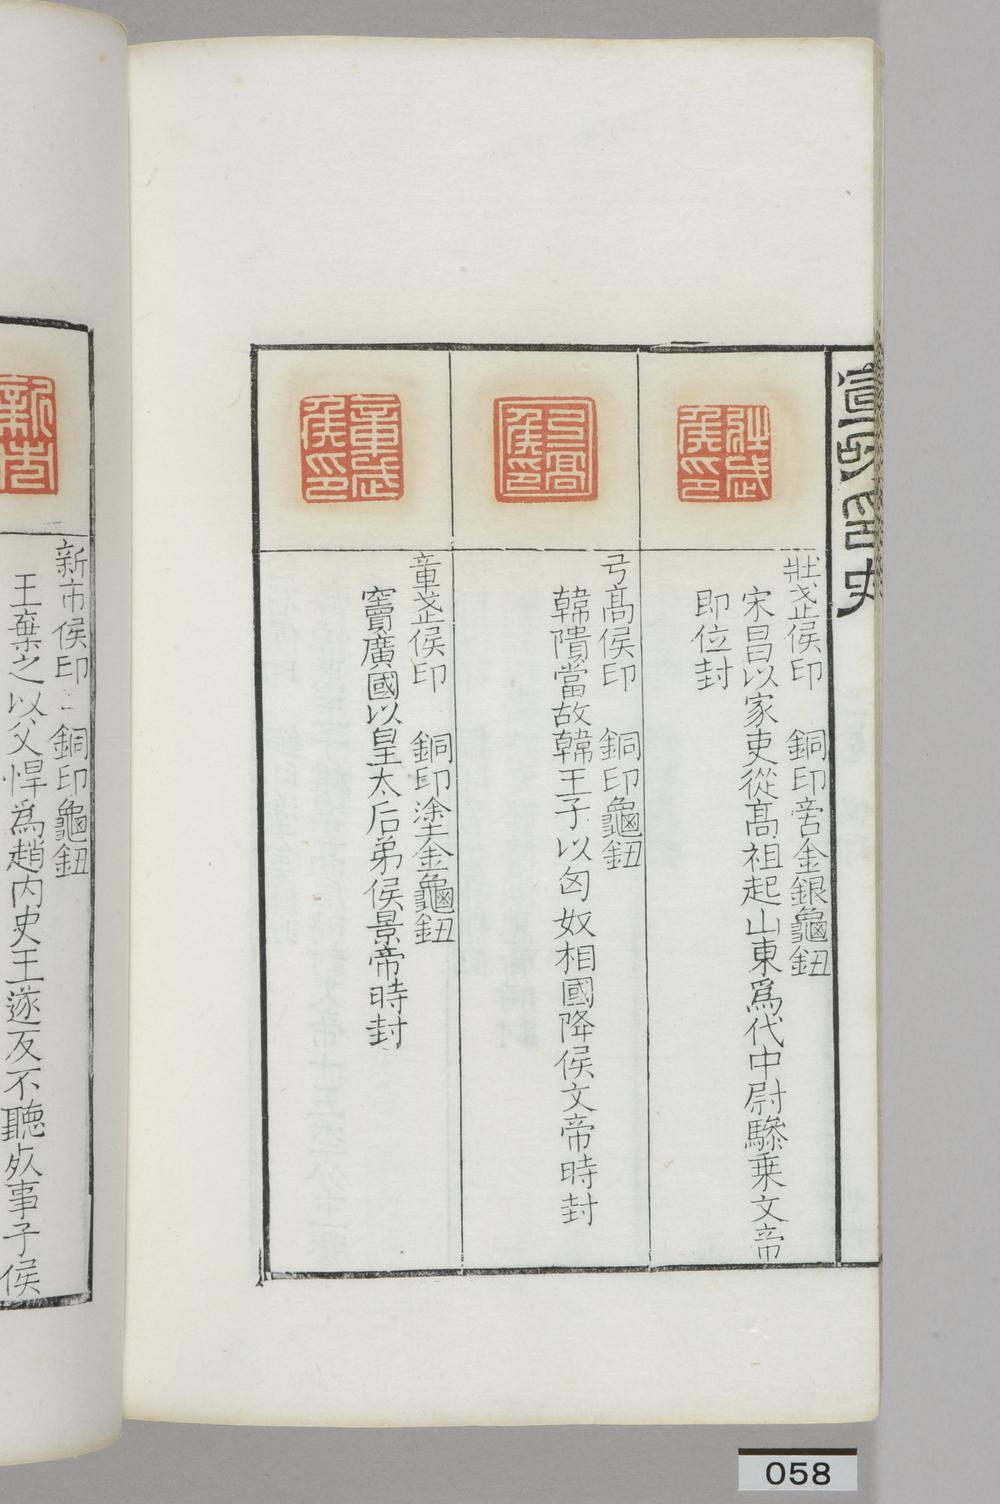 宣和印史
壯武侯印
壯武侯印　銅印㫄金銀龜鈕
宋昌以家吏從髙祖起山東爲代中尉驂乗文帝
即位封
弓髙侯印
弓髙侯印　銅印龜鈕
韓隤當故韓王子以匈奴相國降侯文帝時封
章武侯印
章武侯印　銅印塗金龜鈕
竇廣國以皇太后弟侯景帝時封
新市
新市侯印　銅印龜鈕
王棄之以父悍爲趙内史王遂反不聽死事子侯
058